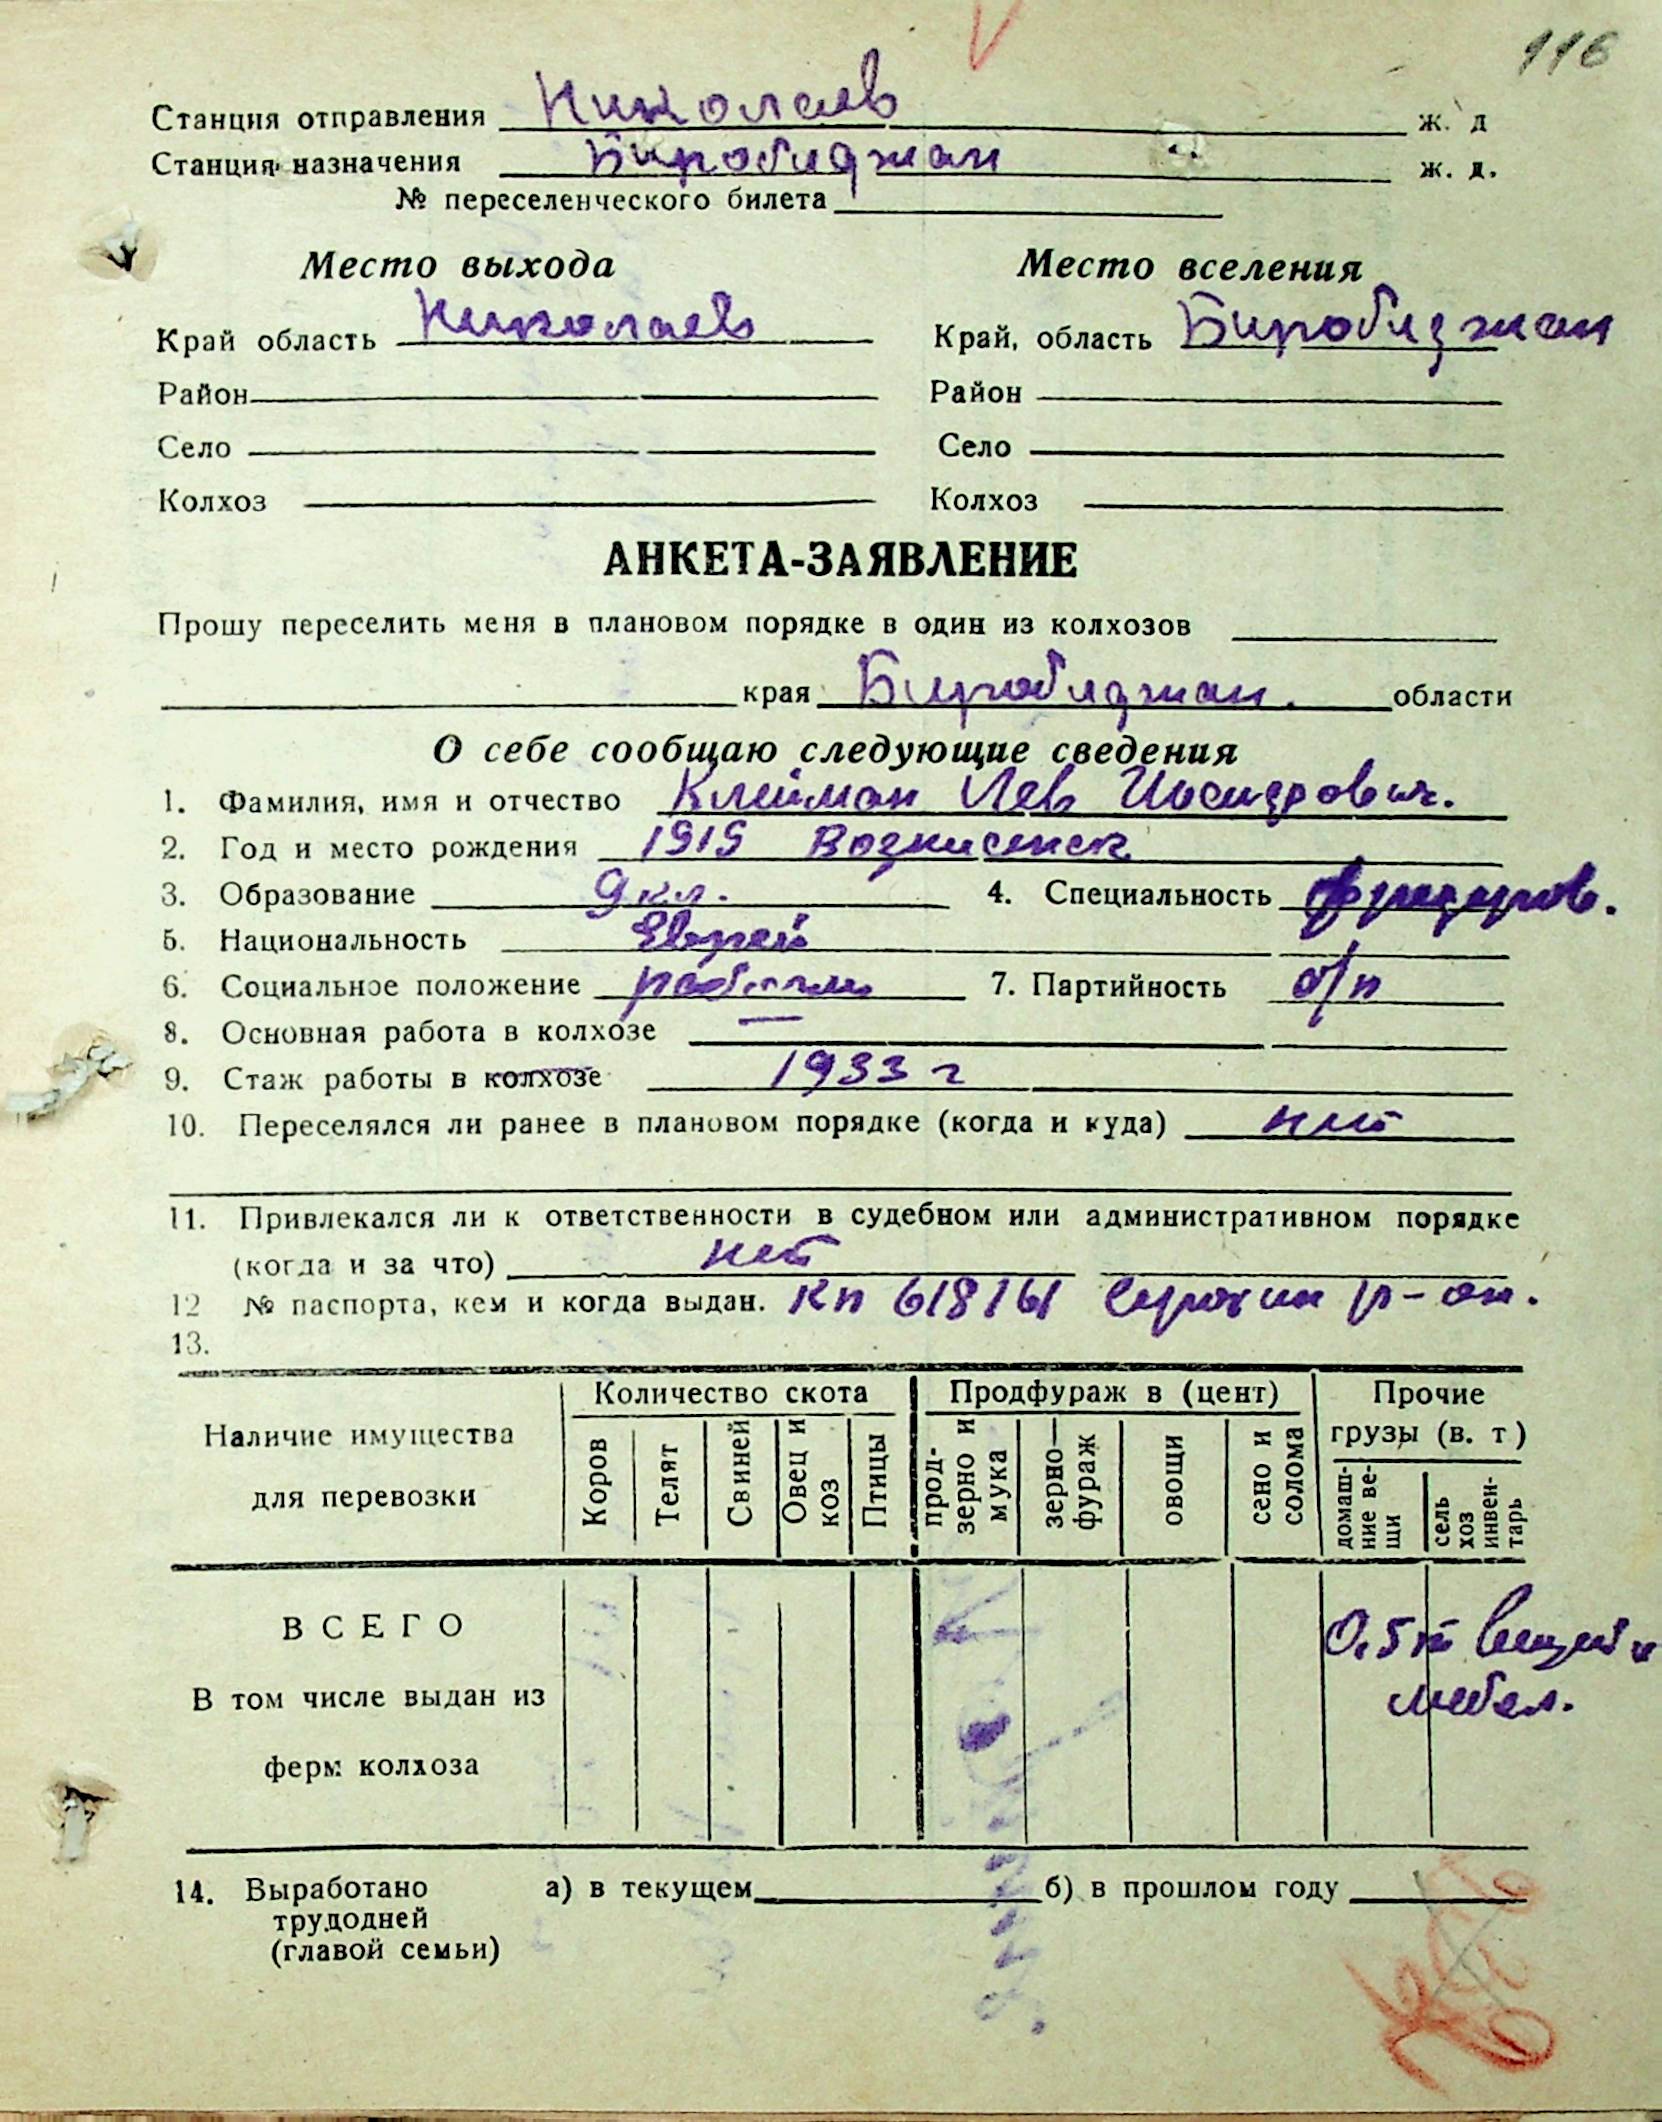 116
Станция отправления Николаев ж. д
Станция назначения Биробиджан ж. д.
№ переселенческого билета
Место выхода Место вселения
Край область Николаев Край, область Биробиджан
Район Район
Село Село
Колхоз Колхоз
АНКЕТА-ЗАЯВЛЕНИЕ
Прошу переселить меня в плановом порядке в один из колхозов
края Биробиджан. области
О себе сообщаю следующие сведения
1. Фамилия, имя и отчество Клейман Лев Иосифович.
2. Год и место рождения 1919 Вознисенск
3. Образование 9 кл. 4. Специальность
5. Национальность Еврей
6. Социальное положение рабочий 7. Партийность б/п
8. Основная работа в колхозе —
9. Стаж работы в колхозе 1933 г
10. Переселялся ли ранее в плановом порядке (когда и куда) нет
11. Привлекался ли к ответственности в судебном или административном порядке
(когда и за что) нет
12 № паспорта, кем и когда выдан. КП 618761 р-он.
13.
Наличие имущества для перевозки
Количество скота Продфураж в (цент) Прочие грузы (в. т)
Коров Телят Свиней Овец и коз Птицы прод-зерно и мука зерно—фураж овощи сено и солома домаш-ние ве-щи сель хоз инвен-тарь
ВСЕГО 0,5т вещей и
В том числе выдан из мебел.
ферм колхоза
14. Выработано а) в текущем б) в прошлом году
трудодней
(главой семьи)